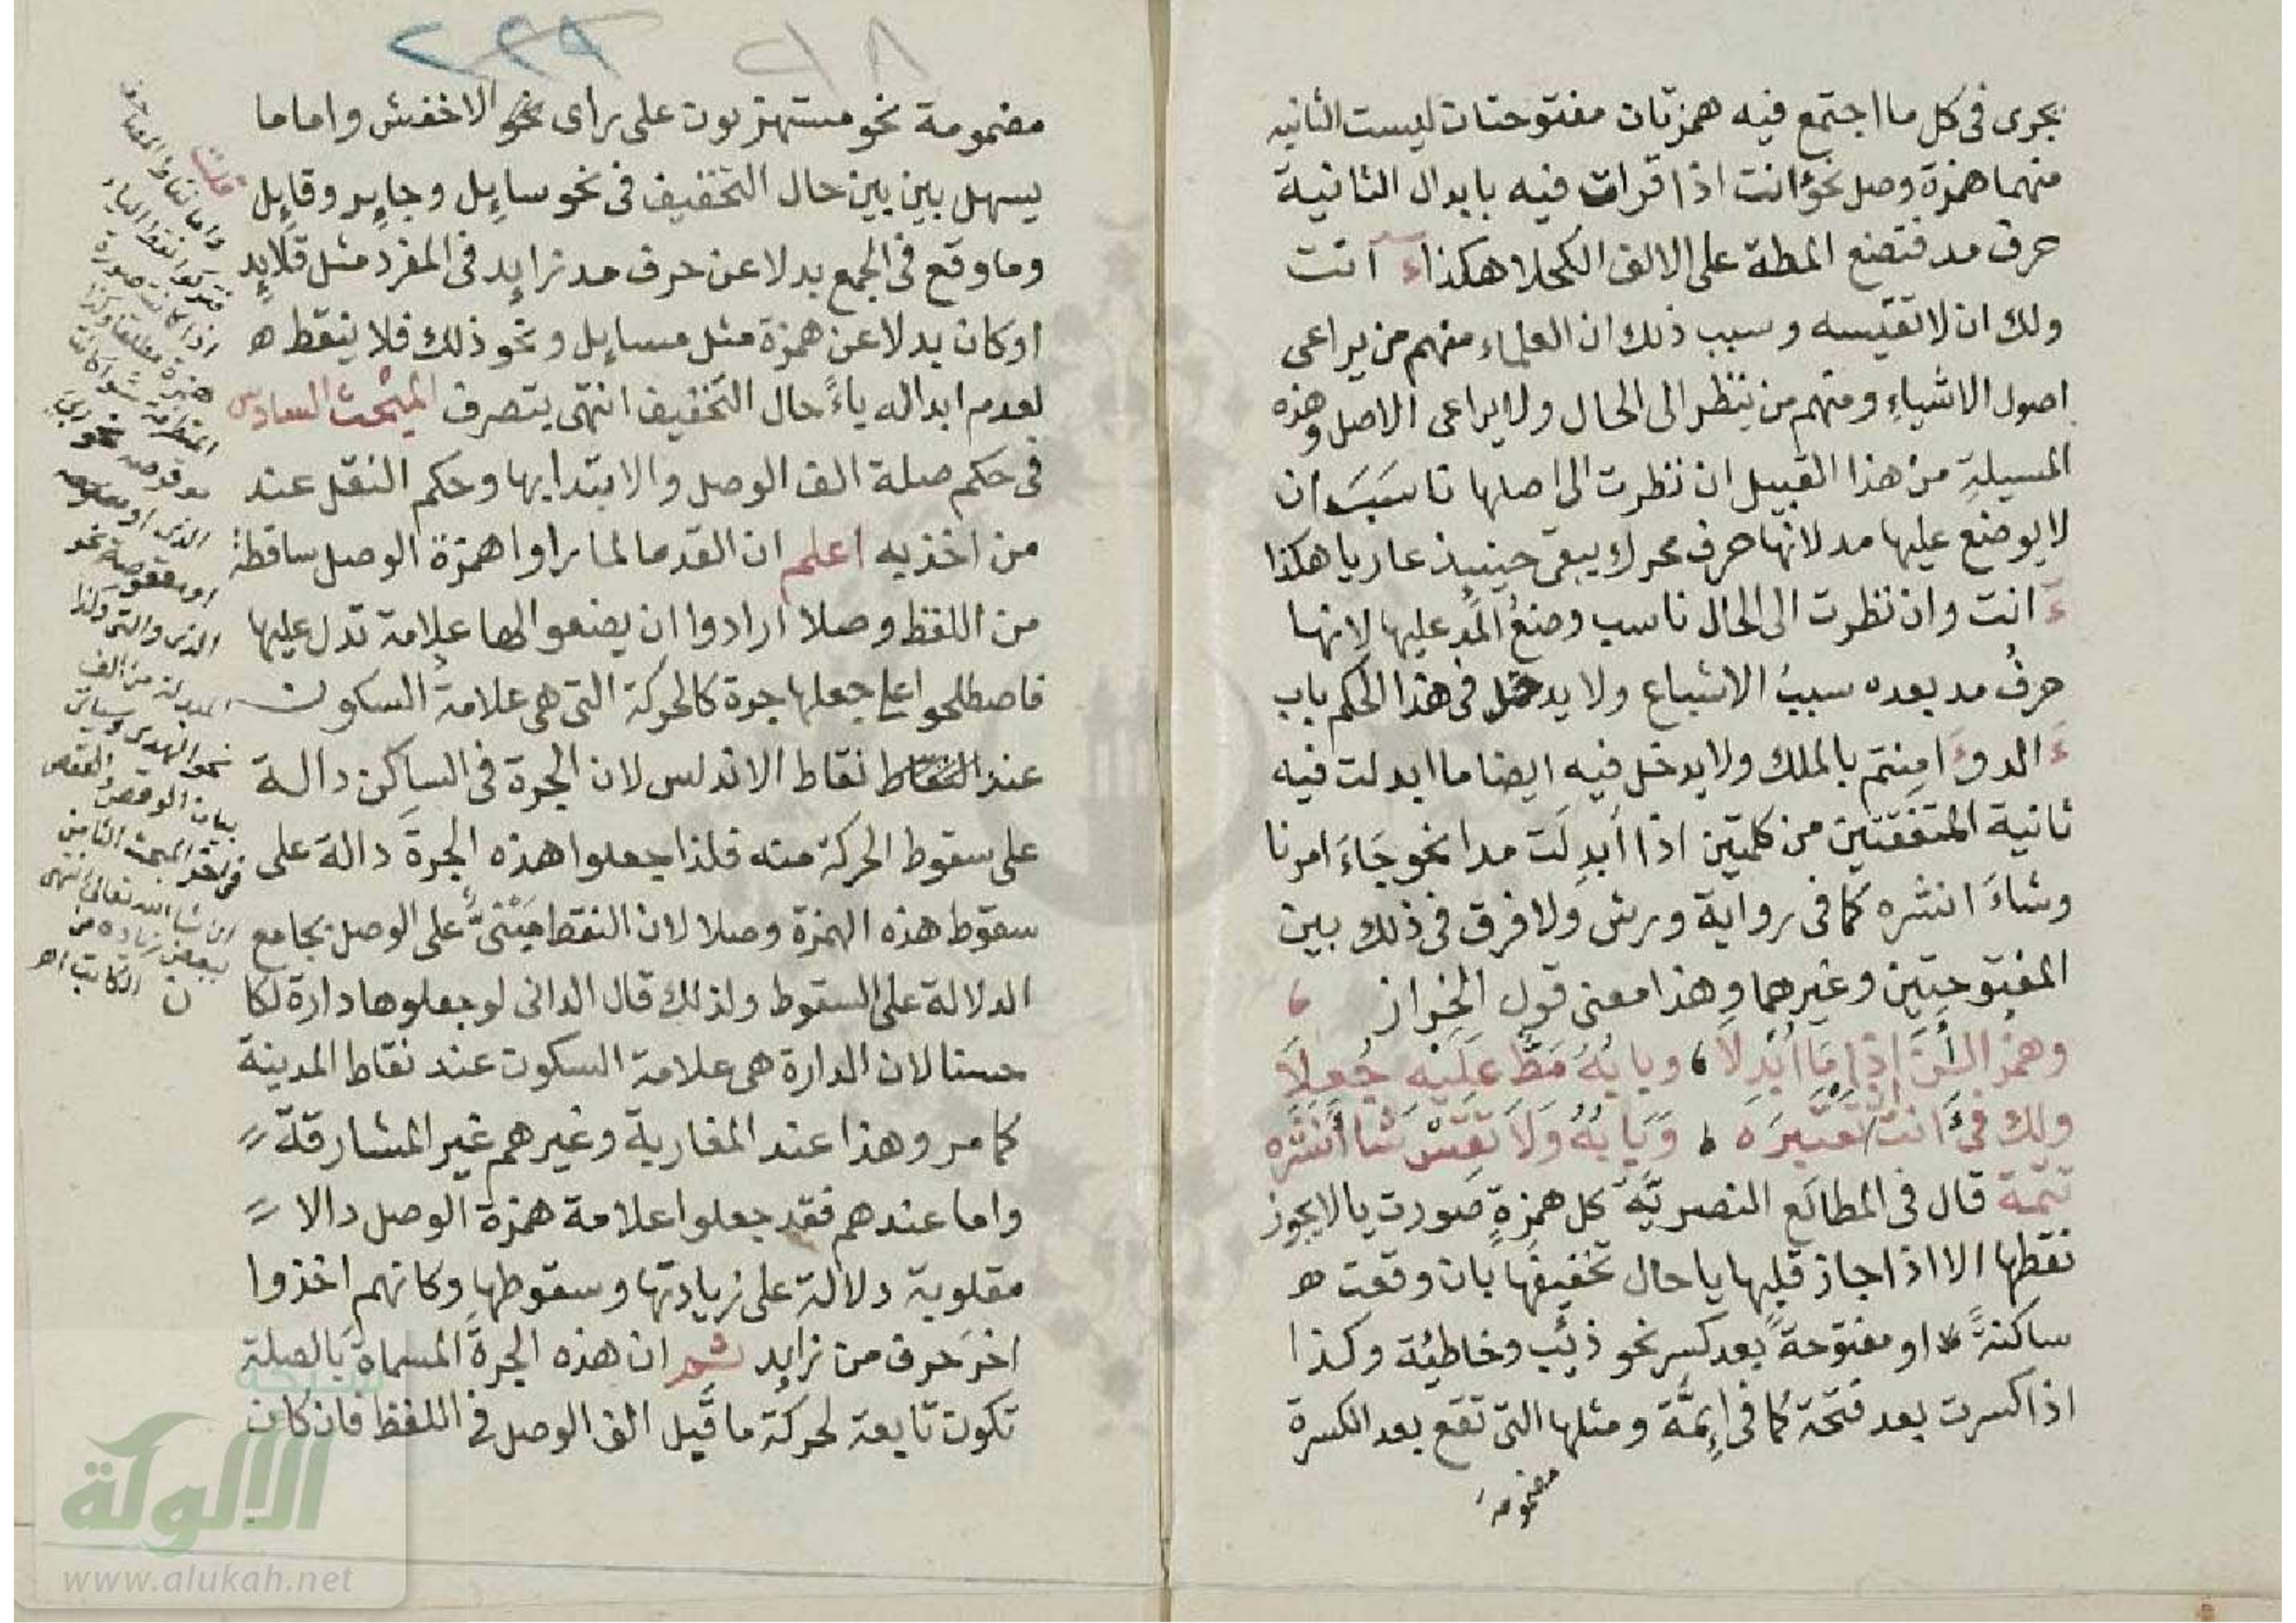 يجرى فى كل ما اجتمع فيه همزتان مفتوحتان ليست الثانيه
منهما همزة وصل نحو ءانت اذا قرات فيه بابدال الثانية
حرف مد فتضع المطة على الالف الكحلا هكذا ءآنت
ولك ان لا تقيسه وسبب ذلك ان العلماء منهم من يراعى
اصول الاشياء ومنهم من ينظر الى الحال ولا يراعى الاصل وهذه
المسيلة من هذا القبيل ان نظرت الى اصلها ناسَبَ ان
لا يوضع عليها مد لانها حرف محرك يبقى حينيذ عاريا هكذا
ءَانت وان نظرت الى الحال ناسب وضعُ المد عليها لانها
حرفُ مد بعده سببُ الاشباع ولا يدخل فى هذا الحكم باب
ءَالد وءَامنتم بالملك ولا يدخل فيه ايضا ما ابدلت فيه
ثانية المتفقتين من كلمتين اذا اُبدِلَت مدا نحو جَاءَ امرنا
وشاءَ انشره كما فى رواية ورش ولا فرق فى ذلك بين
المفتوحتين وغيرهما وهذا معنى قول الخراز
وهمز الئن اذا ما ابدلا، وبابه مط عليه جعلا
ولك فى ءَانت ان تعتبره، وبابه ولا تقس شا انشره
تتمة قال فى المطالع النصريَّة كل همزةٍ صورت يا لا يجوز
نقطها الا اذا جاز قلبها يا حال تخفيفها بان وقعت ه
ساكنةً او مفتوحةً بعد كسر نحو ذئب وخاطئة وكذا
اذا كسرت بعد فتحة كما فى ائِمَّة ومثلها التى تقع بعد الكسرة
مضمومة
٢٢٩ ١٨
مضمومة نحو مستهزيون على راى نحو الاخفش واما ما
يسهل بين بين حال التخفيف فى نحو سايِل وجايِر وقايِل
وما وقع فى الجمع بدلا عن حرف مد زايد فى المفرد مثل قلايد
او كان بدلا عن همزة مثل مسايِل ونحو ذلك فلا ينقط ه
لعدم ابداله ياءً حال التخفيف انتهى بتصرف المبحث السادس
فى حكم صلة الف الوصل والابتدا بها وحكم النقل عند
من اخذ به اعلم ان القدما لما راوا همزة الوصل ساقطة
من اللفظ وصلا ارادوا ان يضعوا لها علامة تدل عليها
فاصطلحوا على جعلها جرة كالجرة التى هى علامة السكون
عند النقاط نقاط الاندلس لان الجرة فى الساكن دالة
على سقوط الحركة منه فلذا جعلوا هذه الجرة دالة على
سقوط هذه الهمزة وصلا لان النقط مَبْنىٌّ على الوصل بجامع
الدلالة على السقوط ولذلك قال الدانى لو جعلوها دارة لكان
حسنا لان الدارة هى علامة السكون عند نقاط المدينة
كما مر وهذا عند المغاربة وغيرهم غير المشارقة
واما عندهم فقد جعلوا علامة همزة الوصل دالا
مقلوبة دلالة على زيادتها وسقوطها وكانهم اخذوا
اخرَ حرف من زايد ثم ان هذه الجرةَ المسماة بالصلة
تكون تابعة لحركة ما قبل الف الوصل فى اللفظ فان كان
قلت
واما نقاط المصاحف
فتركوا نقط الياء
اذا كانت صورة
همزة مطلقا وكذا
المتطرفة سوا كانت
الذى او
او معقوصة نحو
الذى والتى وكذا
المبدلة من الف
نحو الهدى وسياتى
بيان الوقص والعقص
فى اخر المبحث الثامن
ان شا الله تعالى انتهى
ببعض زيادة من
الكاتب اه
الالوكة
شبكة
www.alukah.net